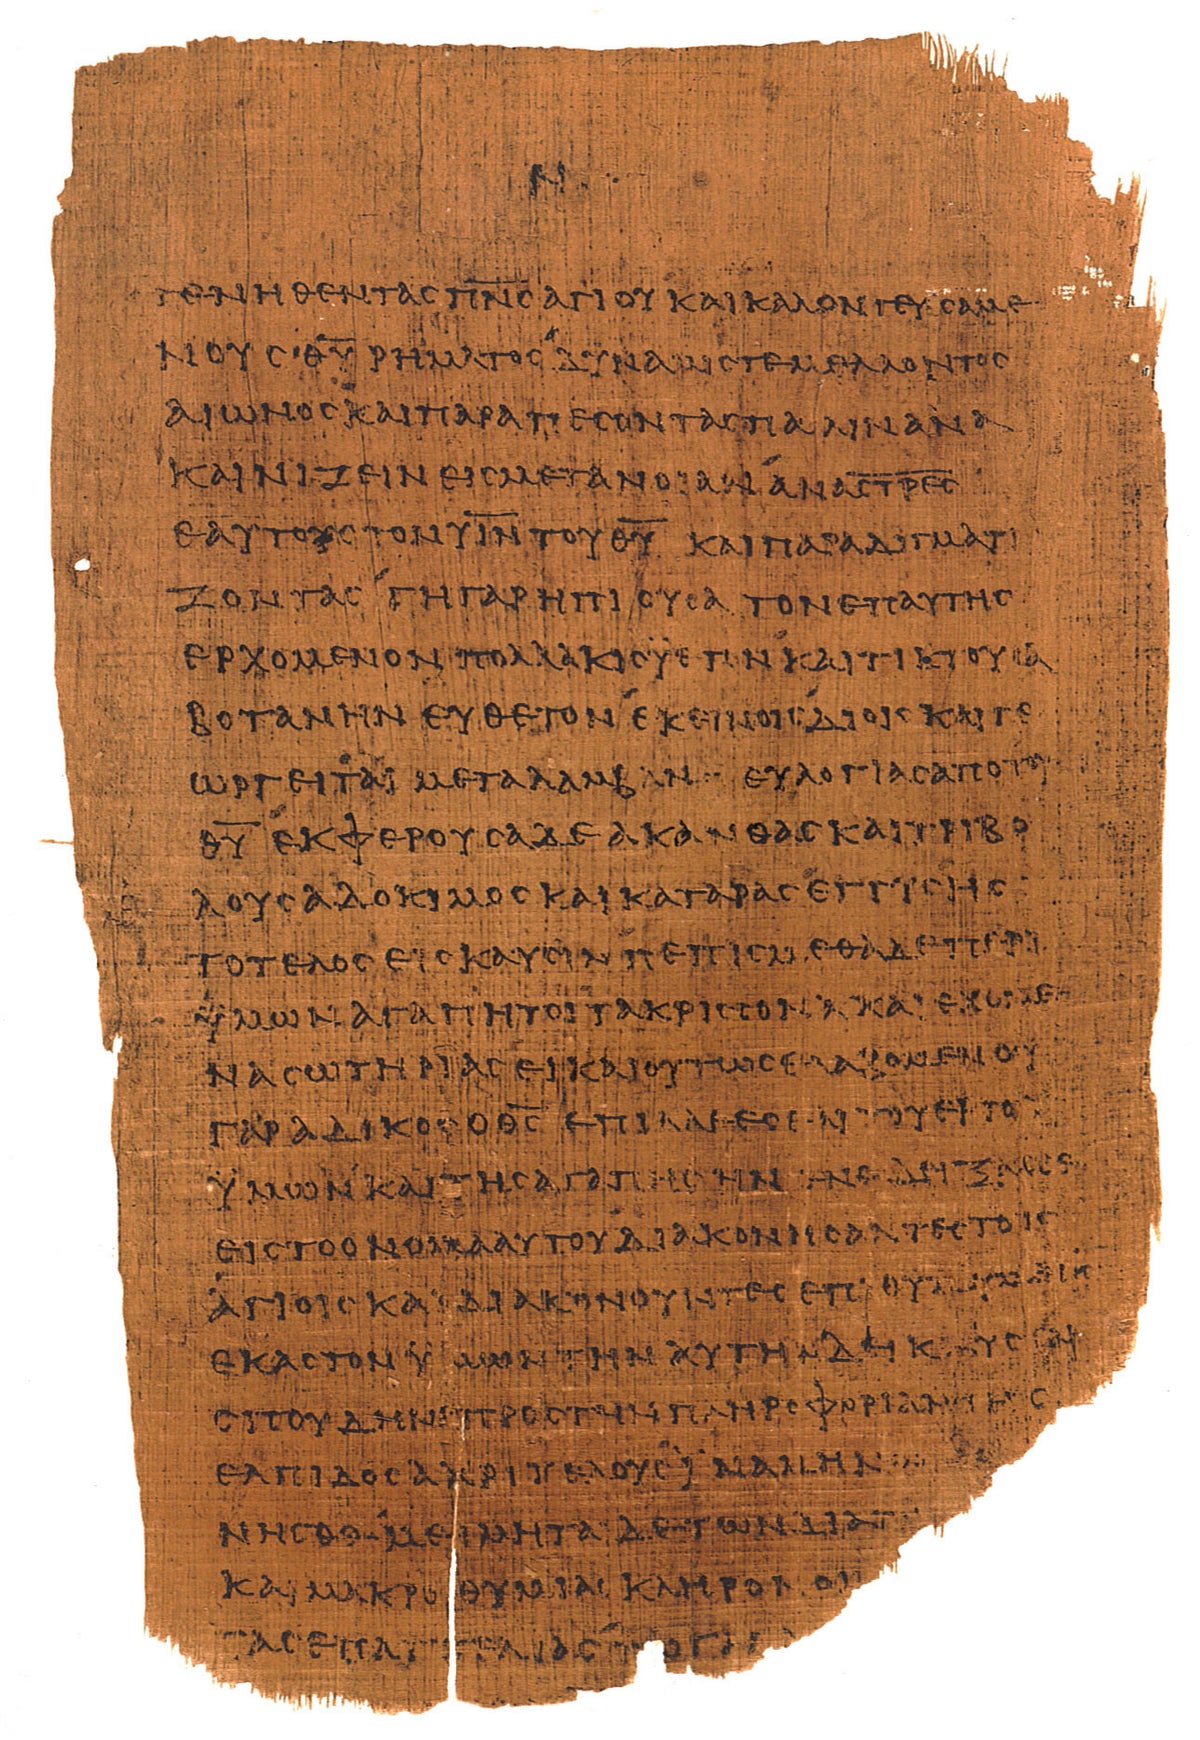 Ν
ΓΕΝΗΘΕΝΤΑϹ ΠΝ̅Ϲ̅ ΑΓΙΟΥ ΚΑΙ ΚΑΛΟΝ ΓΕΥϹΑΜΕ
ΝΟΥϹ Θ̅Υ̅ ΡΗΜΑΤΟϹ ΔΥΝΑΜΙϹ ΤΕ ΜΕΛΛΟΝΤΟϹ
ΑΙΩΝΟϹ ΚΑΙ ΠΑΡΑΠΕϹΟΝΤΑϹ ΠΑΛΙΝ ΑΝΑ
ΚΑΙΝΙΖΕΙΝ ΕΙϹ ΜΕΤΑΝΟΙΑΝ ΑΝΑϹ̅Τ̅Ρ̅Ε̅Ϲ̅
ΕΑΥΤΟΥϹ ΤΟΝ Υ̅Ι̅Ν̅ ΤΟΥ Θ̅Υ̅ ΚΑΙ ΠΑΡΑΔΙΓΜΑΤΙ
ΖΟΝΤΑϹ ΓΗ ΓΑΡ Η ΠΙΟΥϹΑ ΤΟΝ ΕΠ ΑΥΤΗϹ
ΕΡΧΟΜΕΝΟΝ ΠΟΛΛΑΚΙϹ ΫΕΤΟΝ ΚΑΙ ΤΙΚΤΟΥϹΑ
ΒΟΤΑΝΗΝ ΕΥΘΕΤΟΝ ΕΚΕΙΝΟΙϹ ΔΙ ΟΙϹ ΚΑΙ ΓΕ
ΩΡΓΕΙΤΑΙ ΜΕΤΑΛΑΜΒΑΝ ΕΥΛΟΓΙΑϹ ΑΠΟ ΤΟΥ
Θ̅Υ̅ ΕΚΦΕΡΟΥϹΑ ΔΕ ΑΚΑΝΘΑϹ ΚΑΙ ΤΡΙΒΟ
ΛΟΥϹ ΑΔΟΚΙΜΟϹ ΚΑΙ ΚΑΤΑΡΑϹ ΕΓΓΥϹ ΗϹ
ΤΟ ΤΕΛΟϹ ΕΙϹ ΚΑΥϹΙΝ ΠΕΠΙϹΜΕΘΑ ΔΕ ΠΕΡΙ
ΫΜΩΝ ΑΓΑΠΗΤΟΙ ΤΑ ΚΡΙϹϹΟΝΑ ΚΑΙ ΕΧΟΜΕ
ΝΑ ϹΩΤΗΡΙΑϹ ΕΙ ΚΑΙ ΟΥΤΩϹ ΕΛΑΛΟΥΜΕΝ ΟΥ
ΓΑΡ ΑΔΙΚΟϹ Ο Θ̅Ϲ̅ ΕΠΙΛΑΘΕϹΘΑΙ ΤΟΥ ΕΡΓΟΥ
ΫΜΩΝ ΚΑΙ ΤΗϹ ΑΓΑΠΗϹ ΗΝ ΕΝΕΔΙΞΑϹΘΕ
ΕΙϹ ΤΟ ΟΝΟΜΑ ΑΥΤΟΥ ΔΙΑΚΟΝΗϹΑΝΤΕϹ ΤΟΙϹ
ΑΓΙΟΙϹ ΚΑΙ ΔΙΑΚΟΝΟΥΝΤΕϹ ΕΠΙΘΥΜΟΥΜΕΝ
ΕΚΑϹΤΟΝ ΫΜΩΝ ΤΗΝ ΑΥΤΗΝ
ϹΠΟΥΔΗΝ ΠΡΟϹ ΤΗΝ ΠΛΗΡΟΦΟΡΙΑΝ ΤΗϹ
ΕΛΠΙΔΟϹ ΑΧΡΙ ΤΕΛΟΥϹ ΪΝΑ ΜΗ Ν
ΓΕΝΗϹΘΕ ΜΕΙΜΗΤΑΙ ΔΕ ΤΩΝ ΔΙΑ
ΚΑΙ ΜΑΚΡΟΘΥΜΙΑϹ ΚΛΗΡΟΝΟΜ
ΤΑϹ ΕΠΑΓΓΕΛΙΑϹ